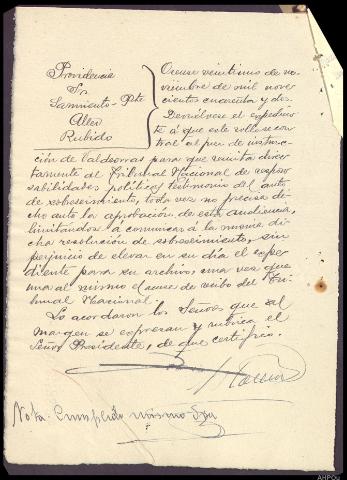 Providencia
Sr.
Sarmiento - Pte
Alen
Rubido
Orense veintiuno de no-
viembre de mil nove-
cientos cuarenta y dos.
Devuélvase el expedien-
te á que este rollo se con-
trae al juez de instruc-
ción de Valdeorras para que remita direc-
tamente al Tribunal Nacional de respon-
sabilidades políticas testimonio del auto
de sobreseimiento, toda vez no precisa di-
cho auto la aprobación de esta audiencia,
limitándose á comunicar á la misma di-
cha resolución de sobreseimiento, sin
perjuicio de elevar en su día el expe-
diente para su archivo, una vez que
una al mismo el acuse de recibo del Tri-
bunal Nacional.
Lo acordaron los Señores que al
margen se expresan y rubrica el
Señor Presidente, de que certifico.
Nota. Cumplido mismo día
AHPOu